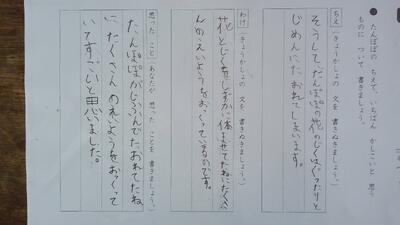 ● たんぽぽの ちえで、いちばん かしこいと 思う
ものに ついて 書きましょう。
ちえ(きょうかしょの 文を 書きぬきましょう。)
そうして、たんぽぽの花のじくは、ぐったりと
じめんにたおれてしまいます。
わけ(きょうかしょの 文を 書きぬきましょう。)
花とじくをしずかに休ませて、たねに、たくさ
んのえいようをおくっているのです。
思った こと(あなたが 思った ことを 書きましょう。)
たんぽぽがじぶんでたおれてたね
に、たくさんのえいようをおくって
いてすごいと思いました。